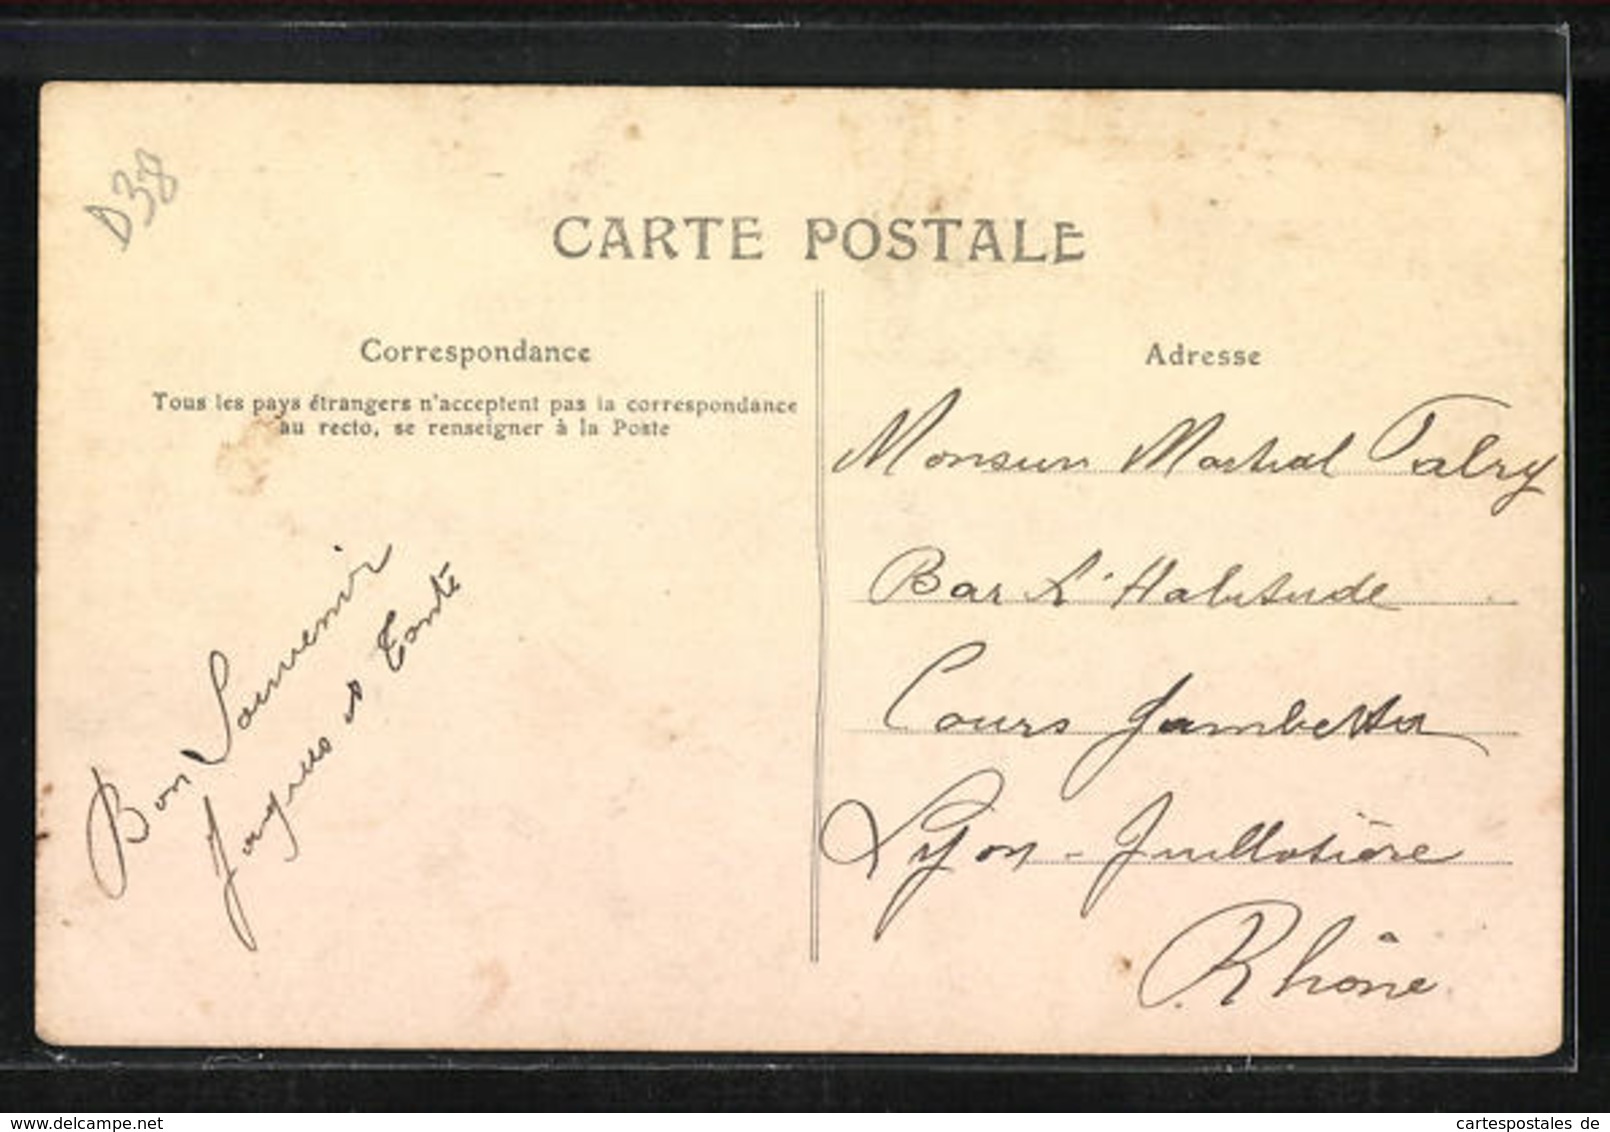 D38
CARTE POSTALE
Correspondance
Tous les pays étrangers n'acceptent pas la correspondance
au recto, se renseigner à la Poste
Bon Souvenir
Jacques et
Adresse
Monsieur Martial
Bar L'Habitude
Cours Gambetta
Lyon - Guillotière
Rhône
www.delcampe.net
cartespostales de